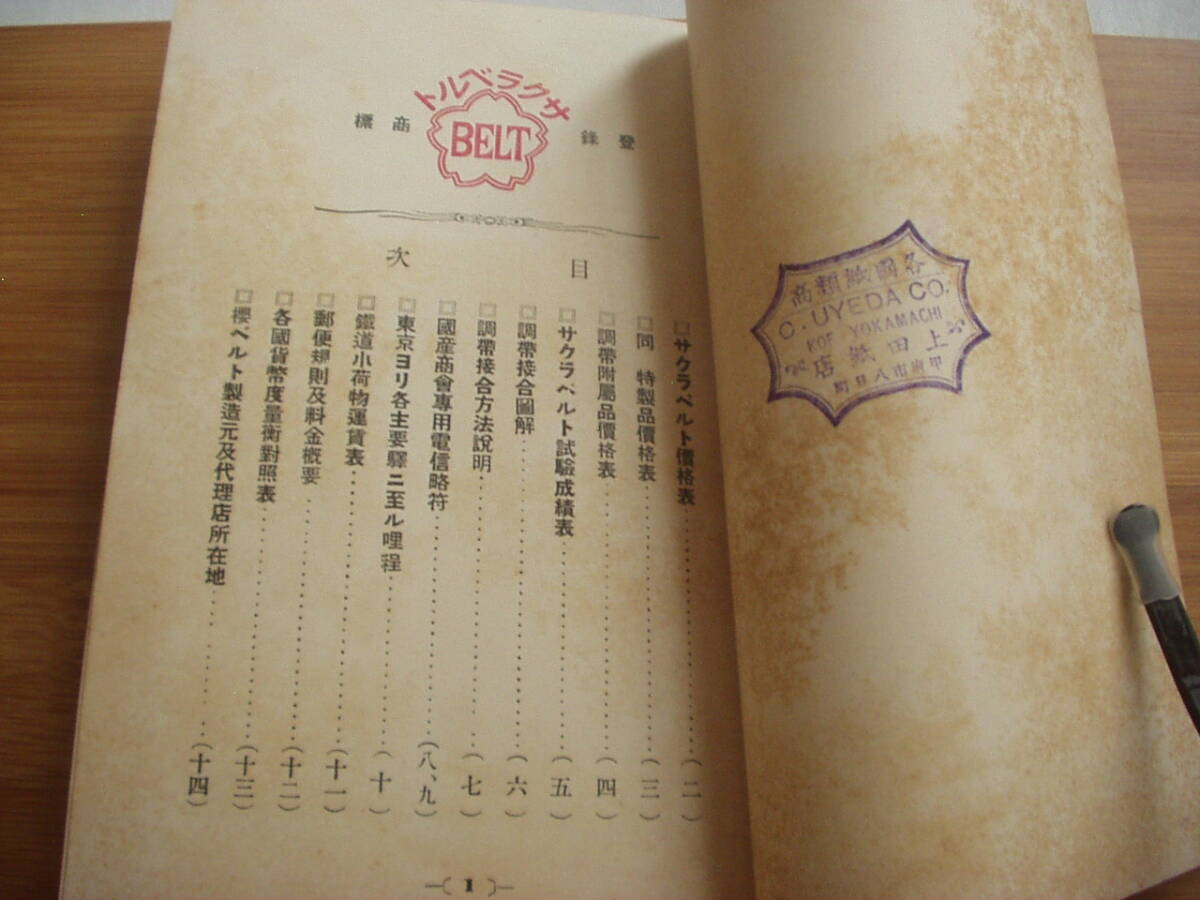 サクラベルト
登錄商標
BELT
目次
□サクラベルト價格表……(二)
□同 特製品價格表……(三)
□調帶附屬品價格表……(四)
□サクラベルト試驗成績表……(五)
□調帶接合圖解……(六)
□調帶接合方法說明……(七)
□國産商會專用電信略符……(八、九)
□東京ヨリ各主要驛ニ至ル哩程……(十)
□鐵道小荷物運賃表……(十一)
□郵便規則及料金概要……(十二)
□各國貨幣度量衡對照表……(十三)
□櫻ベルト製造元及代理店所在地……(十四)
1
各國紙類商
C. UYEDA CO.
KOF YOKAMACHI
上田紙店
甲府市八日町